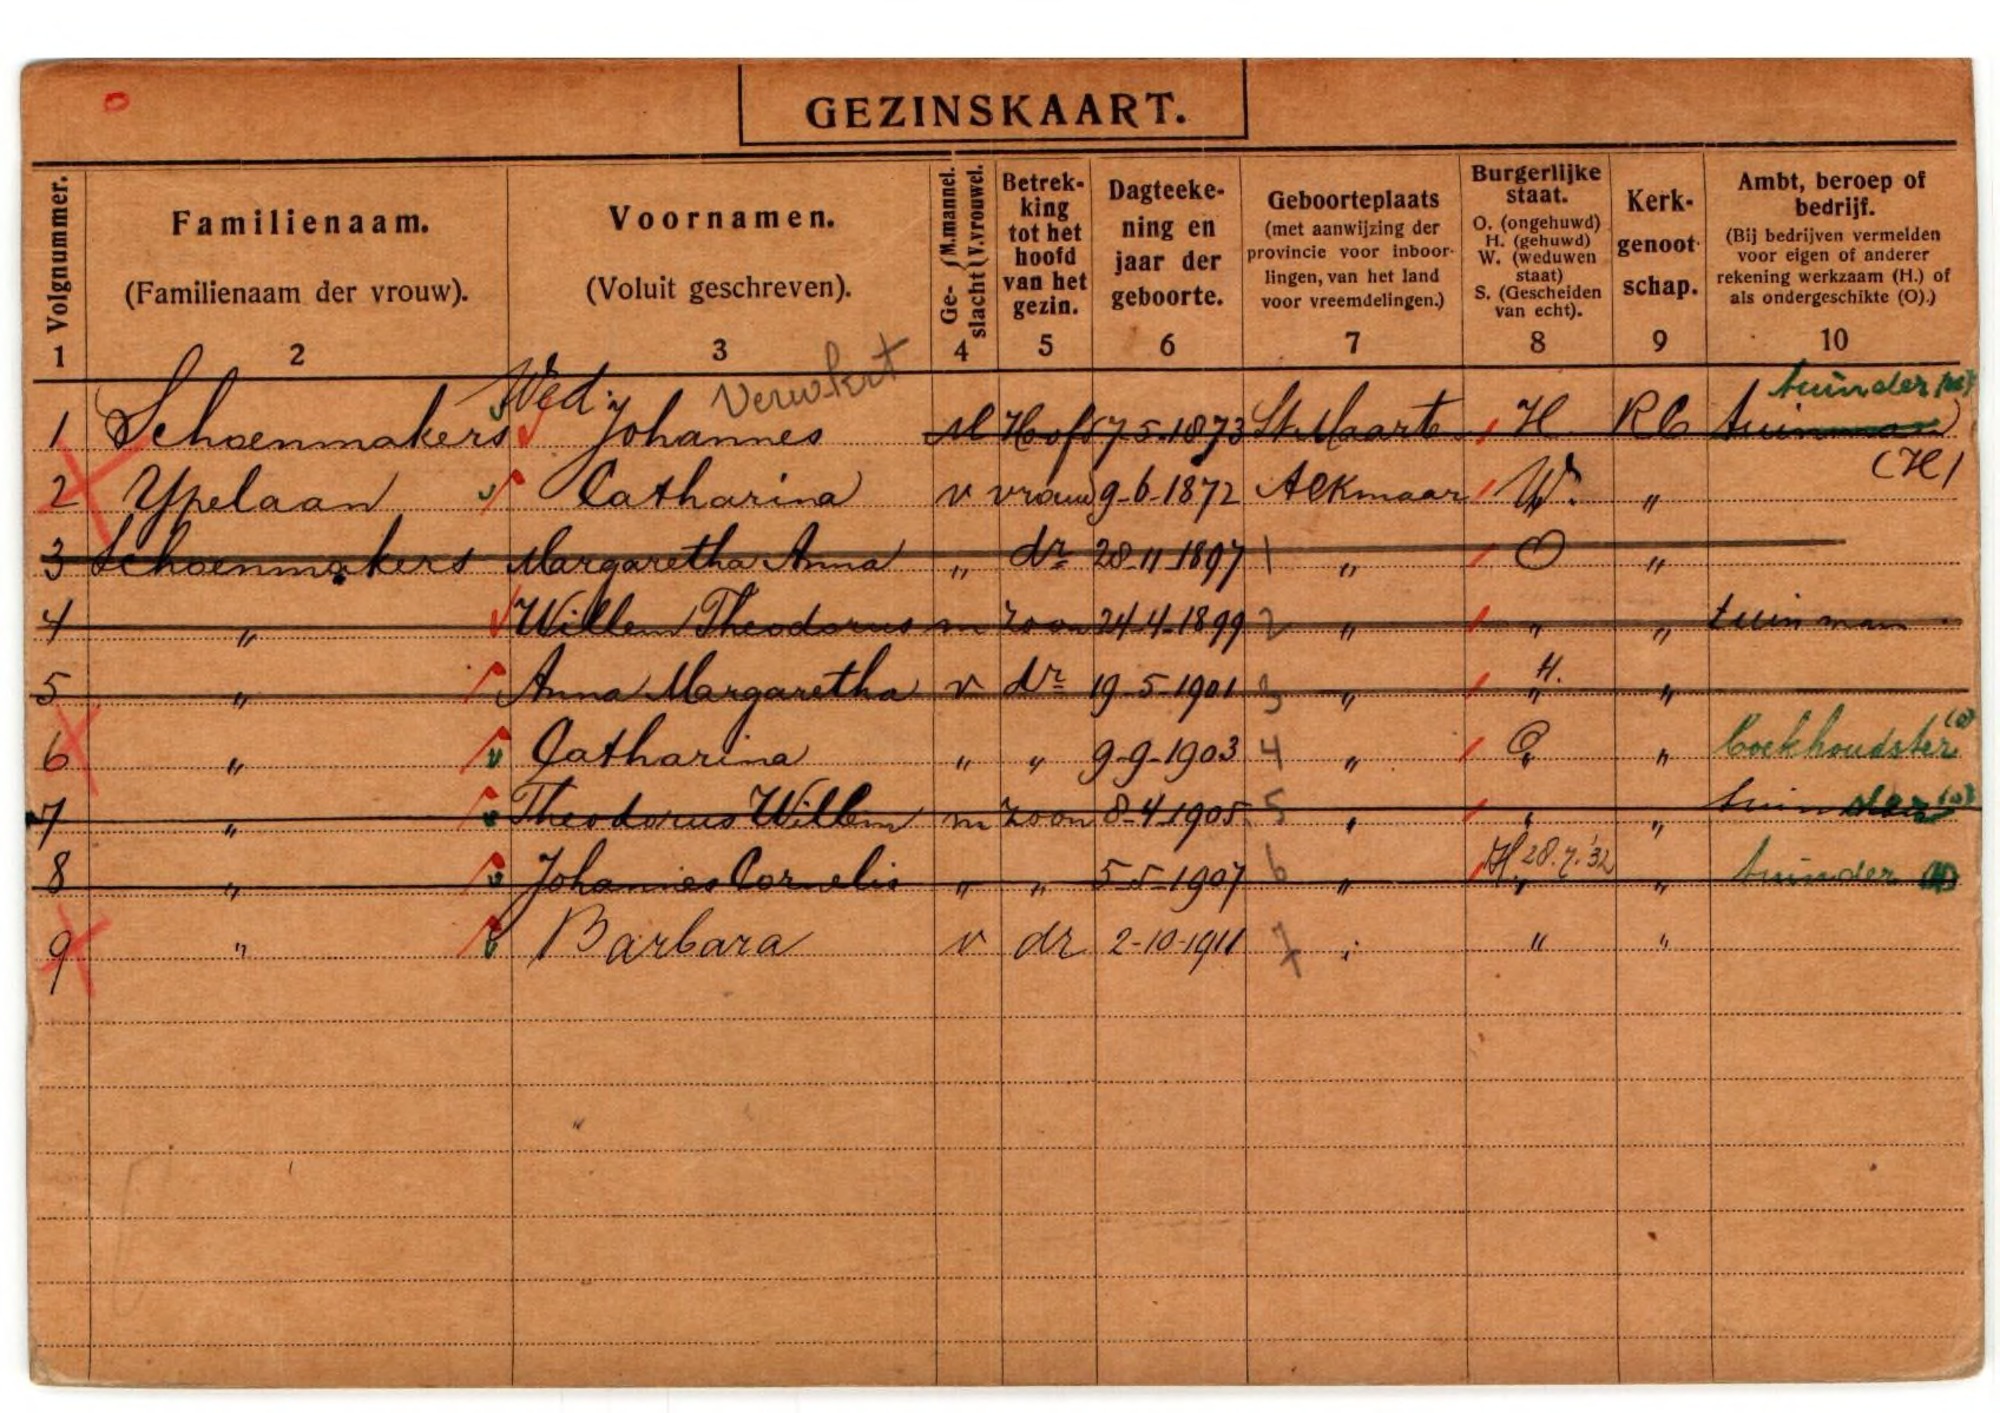 GEZINSKAART.
Volgnummer. 1
Familienaam. (Familienaam der vrouw). 2
Voornamen. (Voluit geschreven). 3
Ge-slacht (M. mannel. V. vrouwel. 4
Betrek-king tot het hoofd van het gezin. 5
Dagteeke-ning en jaar der geboorte. 6
Geboorteplaats (met aanwijzing der provincie voor inboor-lingen, van het land voor vreemdelingen.) 7
Burgerlijke staat. O. (ongehuwd) H. (gehuwd) W. (weduwen staat) S. (Gescheiden van echt). 8
Kerk-genoot-schap. 9
Ambt, beroep of bedrijf. (Bij bedrijven vermelden voor eigen of anderer rekening werkzaam (H.) of als ondergeschikte (O).) 10
Wed. Verwerkt tuinder
1 Schoenmakers Johannes M Hoofd 7-5-1873 St. Maarte H RC tuinman (H)
2 Ypelaan Catharina v vrouw 9-6-1872 Alkmaar W. "
3 Schoenmakers Margaretha Anna " dr 28-11-1897 1 " O "
4 " Willem Theodorus m zoon 24-4-1899 2 " " " tuinman
5 " Anna Margaretha v dr 19-5-1901 3 " H. " "
6 " Catharina " " 9-9-1903 4 " O " "  Boekhoudster (o)
7 " Theodorus Willem m zoon 8-4-1905 5 " " " tuinder (o)
8 " Johannes Cornelis " " 5-5-1907 6 " H 28.7.'32 " " tuinder (H)
9 " Barbara v dr 2-10-1911 7 " " "